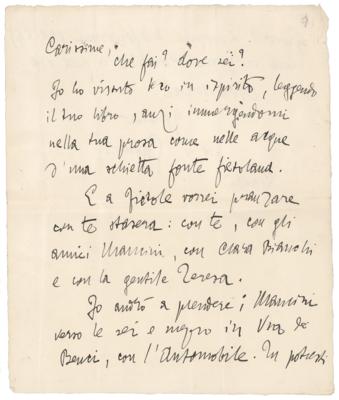 Carissimo,
che fai? dove sei?
Io ho vissuto teco in ispirito, leggendo
il tuo libro, anzi immergendomi
nella tua prosa come nelle acque
d'una schietta fonte fiesolana.
E a Fiesole vorrei pranzare
con te stasera: con te, con gli
amici Mancini, con Clara Bianchi
e con la gentile Teresa.
Io andrò a prendere i Mancini
verso le sei e mezzo in Via de'
Benci, con l'Automobile. Tu potresti